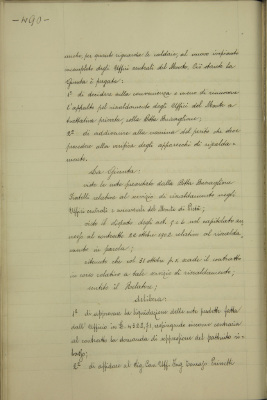 -490-
anche per quanto riguarda le caldaie, al nuovo impianto
incompleto degli Uffici centrali del Monte. Ciò stante la
Giunta è pregata:
1° di decidere sulla convenienza o meno di rinnovare
l'appalto pel riscaldamento degli Uffici del Monte a
trattativa privata, colla Ditta
2° di addivenire alla nomina del perito che deve
procedere alla verifica degli apparecchi di riscalda-
mento.
La Giunta
vista la nota presentata dalla Ditta
Fratelli relativa al servizio di riscaldamento negli
Uffici centrali e succursali del Monte di Pietà;
visto il disposto degli art. 4 e 5 del capitolato an-
nesso al contratto 22 ottobre 1902 relativo al riscalda-
mento in parola;
ritenuto che col 31 ottobre p.v. scade il contratto
in corso relativo a tale servizio di riscaldamento;
sentito il Relatore;
delibera
1° di approvare la liquidazione delle note predette fatta
dall'Ufficio in £. respingendo siccome contraria
al contratto la domanda di
2° di affidare al Sig. Cav. Uff. Ing.